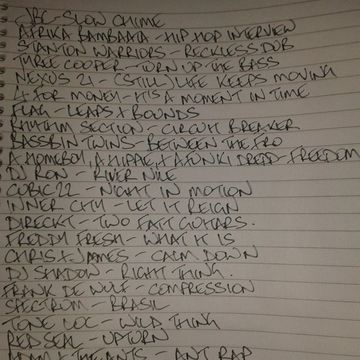 JBC - SLOW CHIME
AFRIKA BAMBAATA - HIP HOP INTERVIEW
STANTON WARRIORS - RECKLESS DUB
THREE COOPER - TURN UP THE BASS
NEXUS 21 - (STILL) LIFE KEEPS MOVING
4 FOR MONEY - IT'S A MOMENT IN TIME
FLAG - LEAPS & BOUNDS
RHYTHM SECTION - CIRCUIT BREAKER
BASSBIN TWINS - BETWEEN THE FRO
A HOMEBOY, A HIPPIE, & A FUNKI DREDD - FREEDOM
DJ RON - RIVER NILE
CUBIC 22 - NIGHT IN MOTION
INNER CITY - LET IT REIGN
DIRECKT - TWO FATT GUITARS.
FREDDY FRESH - WHAT IT IS
CHRIS & JAMES - CALM DOWN
DJ SHADOW - RIGHT THING.
FRANK DE WULF - COMPRESSION
SPECTRUM - BRASIL
TONE LOC - WILD THING
RED SEAL - UPTURN
ADAM & THE ANTS - ANT RAP